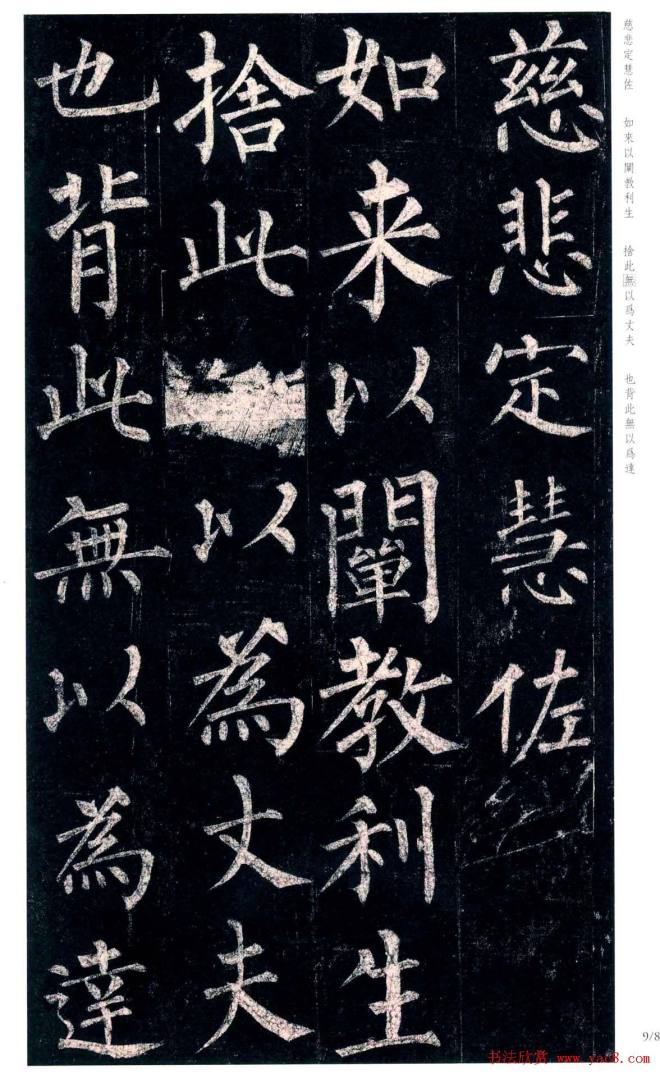 慈悲定慧佐
如来以闡教利生
捨此以為丈夫
也背此無以為達
慈悲定慧佐　如來以闡教利生　捨此無以爲丈夫　也背此無以爲達
9/8
书法欣赏 www.yac8.com